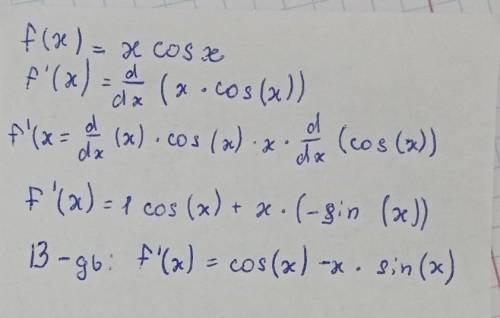 f(x) = x cos x
f'(x) = d/dx (x · cos(x))
f'(x = d/dx (x) · cos(x) · x · d/dx (cos(x))
f'(x) = 1 cos(x) + x · (-sin (x))
В-дь: f'(x) = cos(x) - x · sin(x)